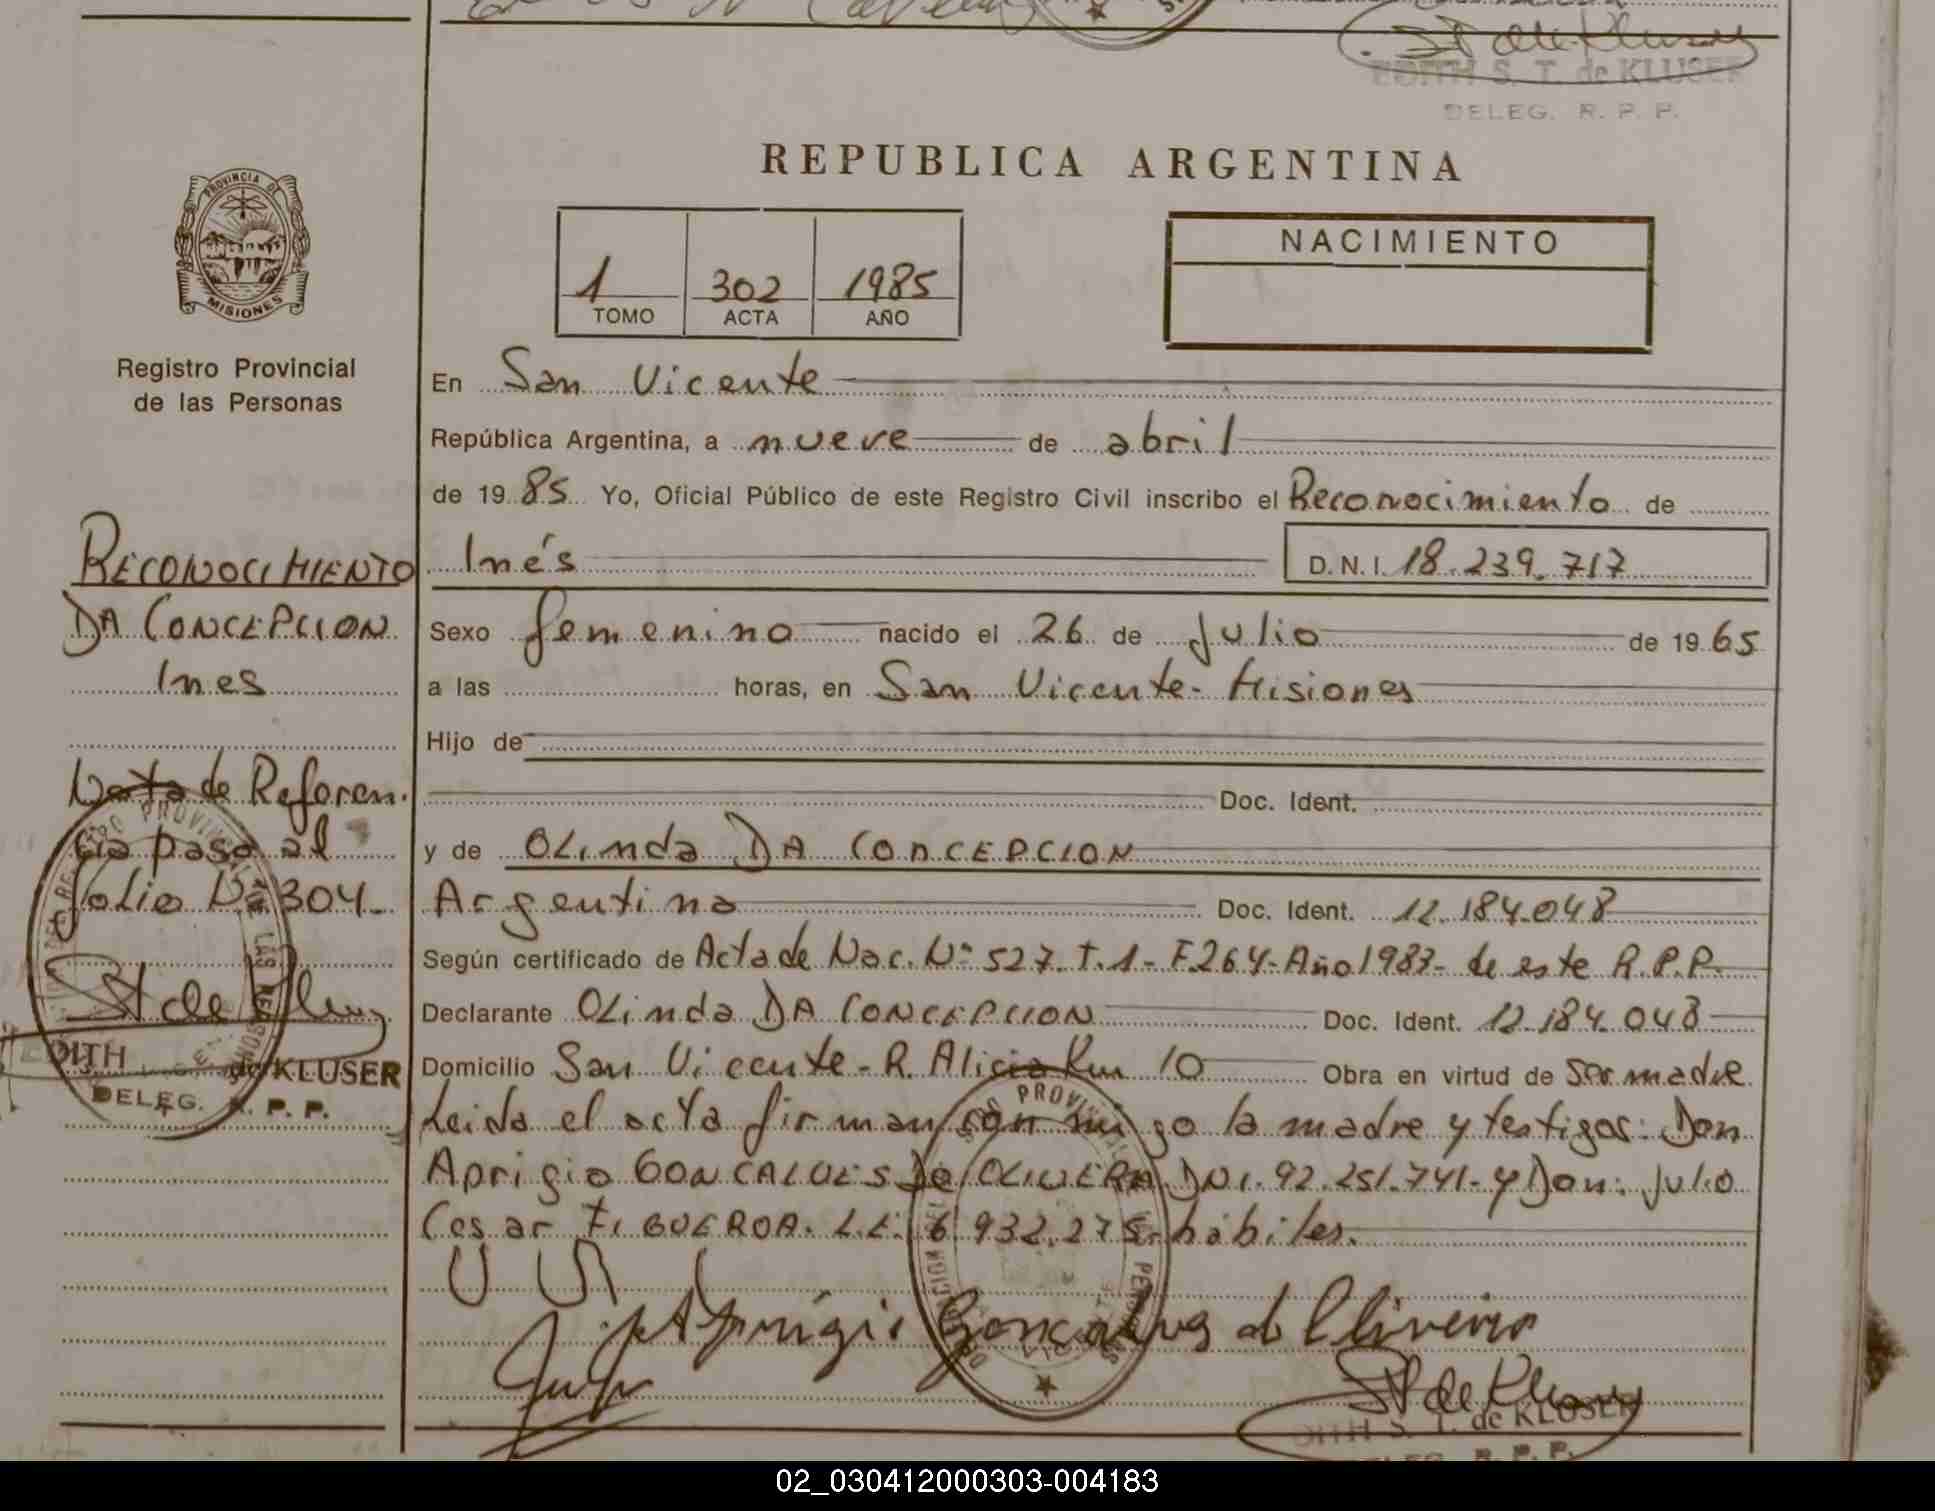 EDITH S. T. de KLUSER
DELEG. R. P. P.
REPUBLICA ARGENTINA
PROVINCIA DE
MISIONES
Registro Provincial
de las Personas
1 302 1985
TOMO ACTA AÑO
NACIMIENTO
En San Vicente
República Argentina, a nueve de abril
de 1985 Yo, Oficial Público de este Registro Civil inscribo el Reconocimiento de
Inés D.N.I. 18.239.717
Sexo femenino nacido el 26 de Julio de 1965
a las horas, en San Vicente - Misiones
Hijo de
Doc. Ident.
y de OLinda DA CONCEPCION
Argentina Doc. Ident. 12.184.048
Según certificado de Acta de Nac. Nº 527. T.1 - F.264 - Año 1983 - de este R.P.P.
Declarante OLinda DA CONCEPCION Doc. Ident. 12.184.048
Domicilio San Vicente - R. Alicia Km 10 Obra en virtud de ser madre
Leida el acta firman con migo la madre y testigos: Don
Aprigio GONCALVES De OLIVERA DNI. 92.251.741 - y Don: Julio
Cesar FIGUEROA. L.E. 6.932.275 - hábiles.
Aprigio Goncalves de Oliveira
St de Kluser
EDITH S. T. de KLUSER
DELEG. R. P. P.
RECONOCIMIENTO
DA CONCEPCION
Ines
Nota de Referen.
cia pasa al
folio Nº 304.
St de Kluser
EDITH de KLUSER
DELEG. R. P. P.
02_030412000303-004183